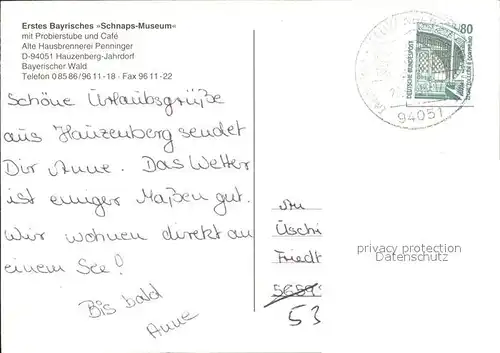 Erstes Bayrisches »Schnaps-Museum«
mit Probierstube und Café
Alte Hausbrennerei Penninger
D-94051 Hauzenberg-Jahrdorf
Bayerischer Wald
Telefon 0 85 86/96 11-18 · Fax 96 11-22
Schöne Urlaubsgrüße
aus Hauzenberg sendet
Dir Anne. Das Wetter
ist einiger Maßen gut.
Wir wohnen direkt an
einem See!
Bis bald
Anne
80
DEUTSCHE BUNDESPOST
94051
An
Üschi
Friedt
5659
53
privacy protection
Datenschutz